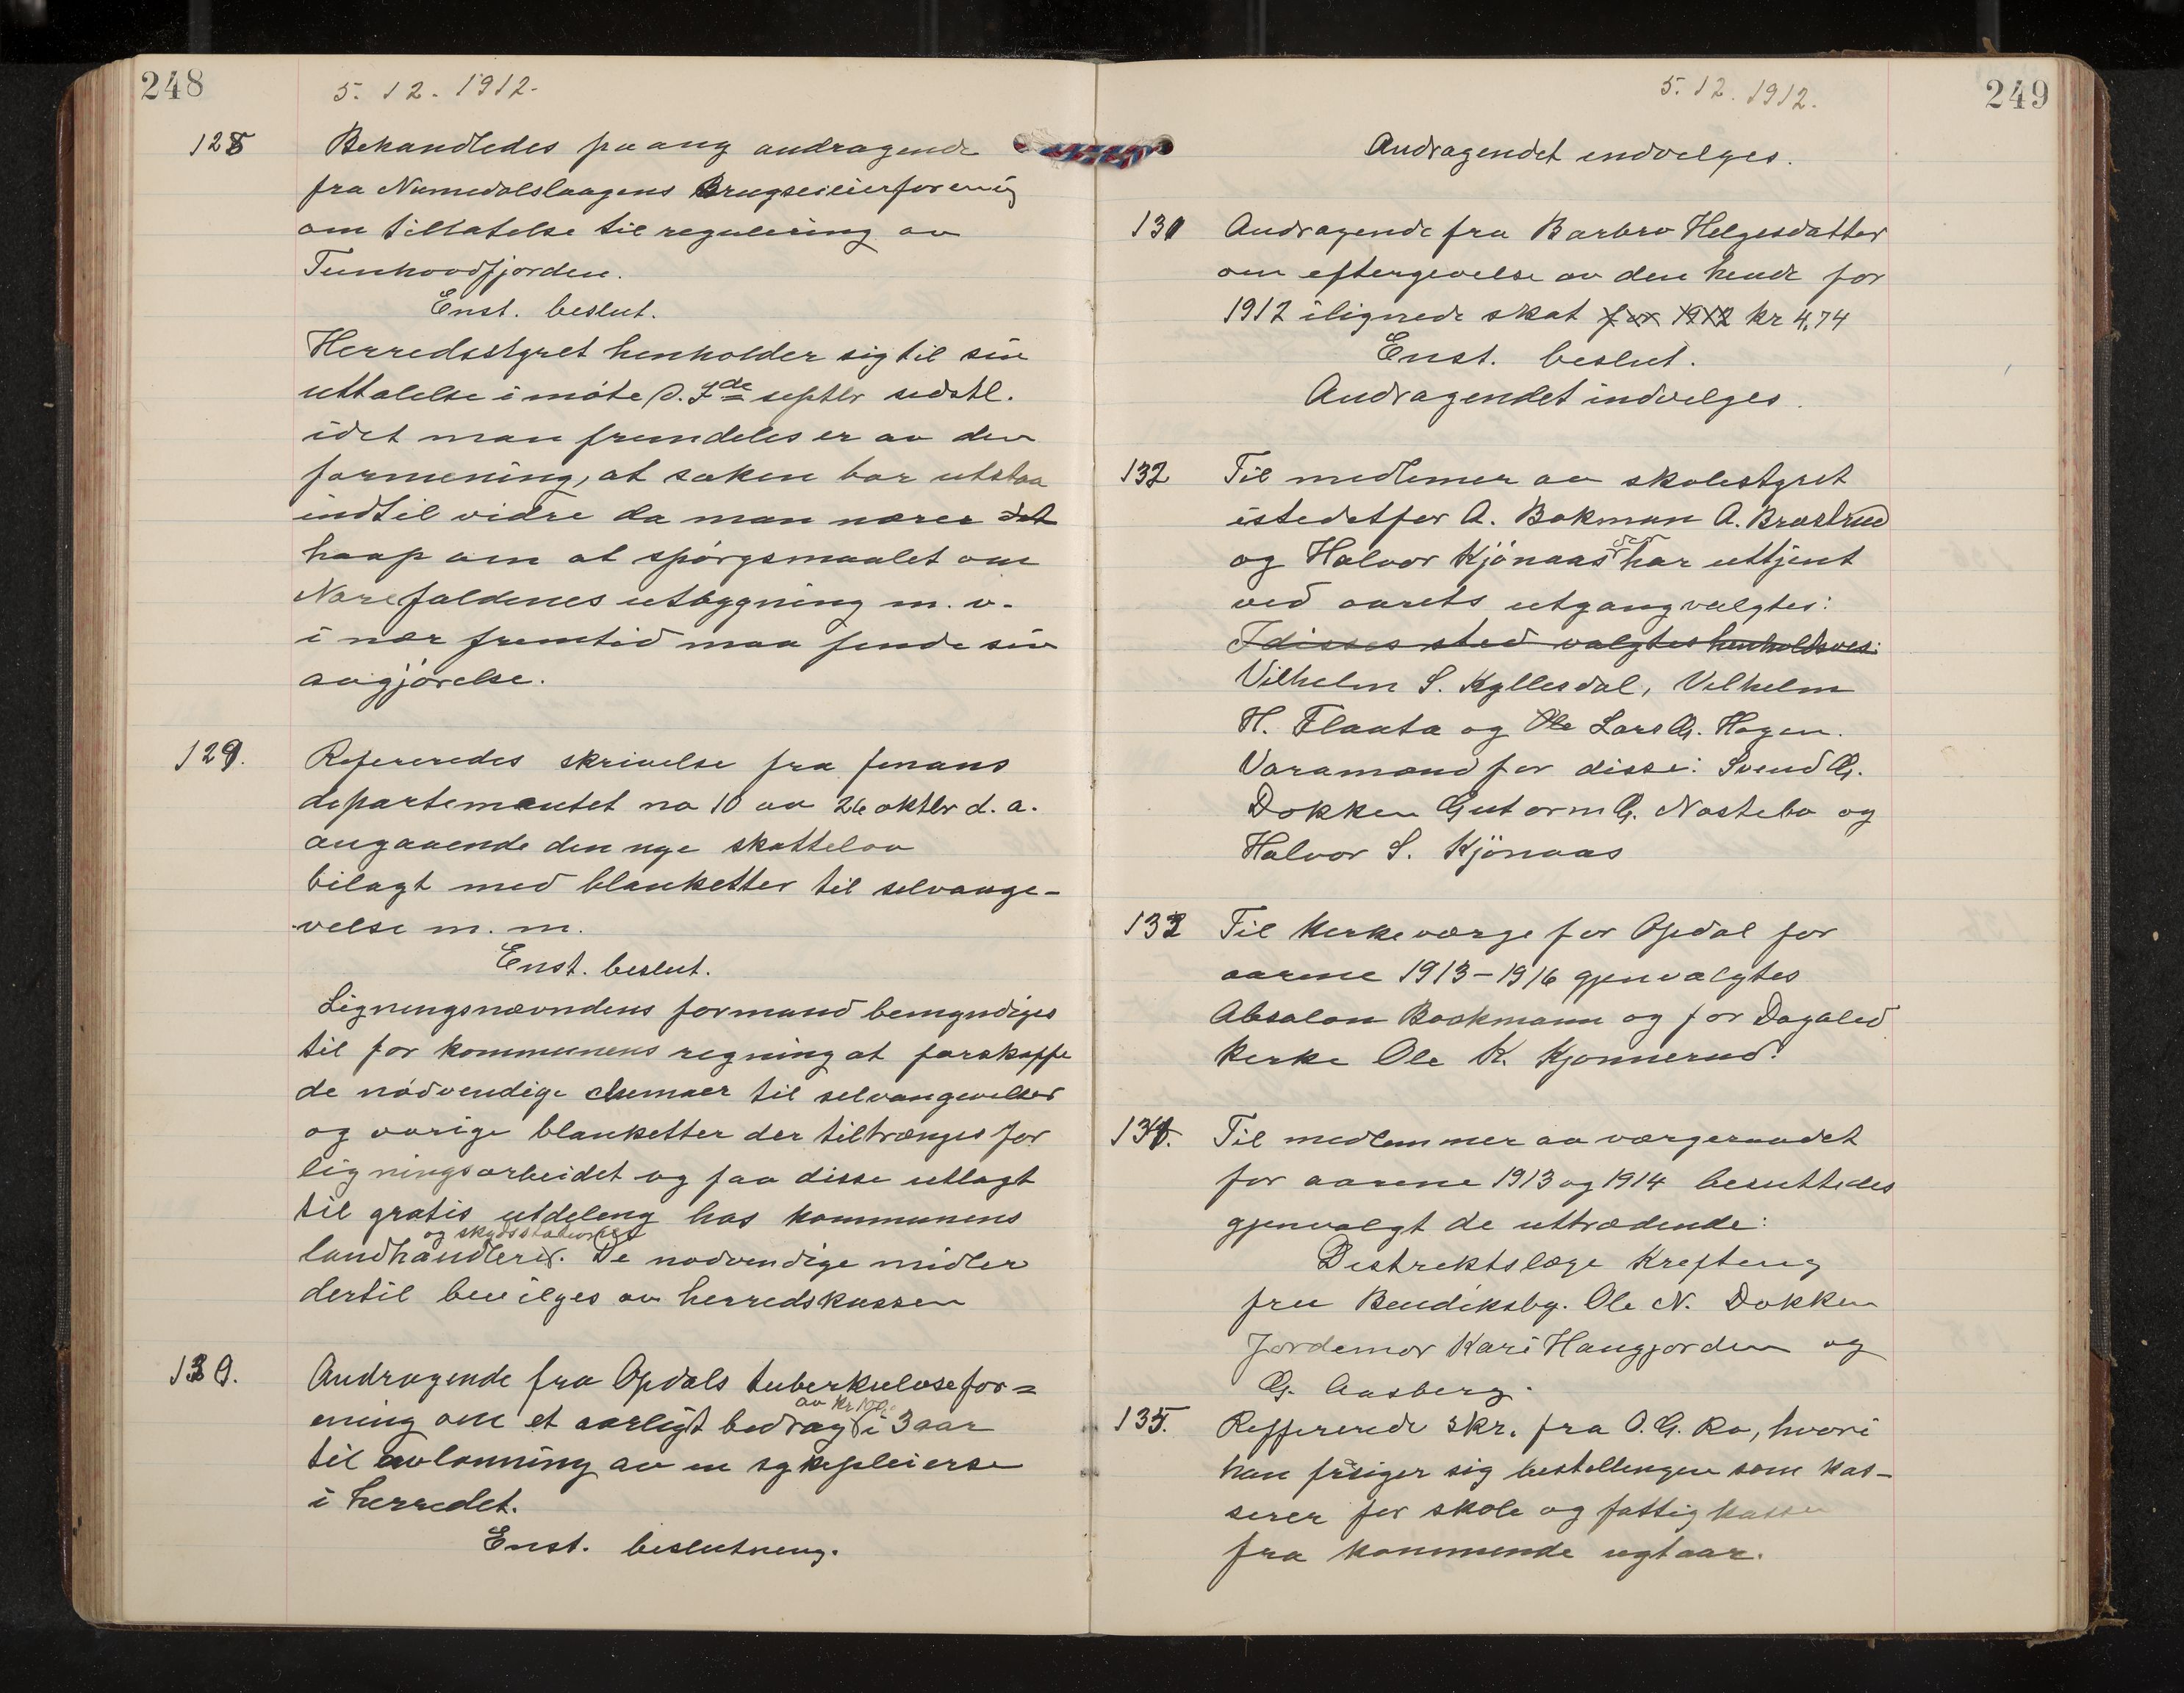 248
5. 12. 1912.
128 Behandledes paa ang andragende
fra Numedalslaagens Brugseieierforenig
om tillatelse til regulering av
Tunhovdfjorden.
Enst. beslut.
Herredsstyret henholder sig til sin
uttalelse i møte d. 7de septbr sidstl.
idet man fremdeles er av den
formening, at saken bør utstaa
indtil vidre da man nærer det
haap om at spørgsmaalet om
Norefaldenes utbygning m. v.
i nær fremtid maa finde sin
avgjørelse.
129. Refereredes skrivelse fra finans
departementet no 10 av 26 oktbr d. a.
angaaende den nye skattelov
bilagt med blanketter til selvange-
velse m. m.
Enst. beslut.
Ligningsnævndens formand bemyndiges
til for kommunens regning at forskaffe
de nødvendige chemaer til selvangivelser
og øvrige blanketter der tiltrænges for
ligningsarbeidet og faa disse utlagt
til gratis utdeling hos kommunens
og skydsstationer
landhandlere. De nødvendige midler
dertil bevilges av herredskassen
130. Andragende fra Opdals tuberkulosefor=
av kr 100
ening om et aarligt bedrag i 3 aar
til avlønning av en sykepleierse
i herredet.
Enst. beslutning.
249
5. 12. 1912.
Andragendet indvelges.
131 Andragende fra Barbro Helgesdatter
om eftergevelse av den hende for
1912 ilignede skat for 1912 kr 4,74
Enst. beslut.
Andragendet indvelges.
132 Til medlemer av skolestyret
istedetfor A. Bokman A. Brøstrud
der
og Halvor Kjönaas har uttjent
ved aarets utgang valgtes:
I disses sted valgtes henholdsves:
Vilhelm S. Kyllesdal, Vilhelm
H. Flaata og Ole Lars G. Hagen.
Varamænd for disse: Svend G.
Dokken Gutorm G. Nøstebø og
Halvor S. Kjönaas
133 Til kerkeværge for Opdal for
aarene 1913-1916 gjenvalgtes
Absalon Bockmann og for Dagalid
kerke Ole K. Kjønnerud.
134. Til medlemmer av værgeraadet
for aarene 1913 og 1914 besluttedes
gjenvalgt de uttrædende:
Destrektslæge Krefteng
fru Bendiksby. Ole N. Dokken
Jordemor Kari Haugjorden og
G. Aasberg.
135. Reffererede skr. fra O. G. Ro, hvori
han frisiger sig bestellingen som kas-
serer for skole og fattigkassen
fra kommende nytaar.